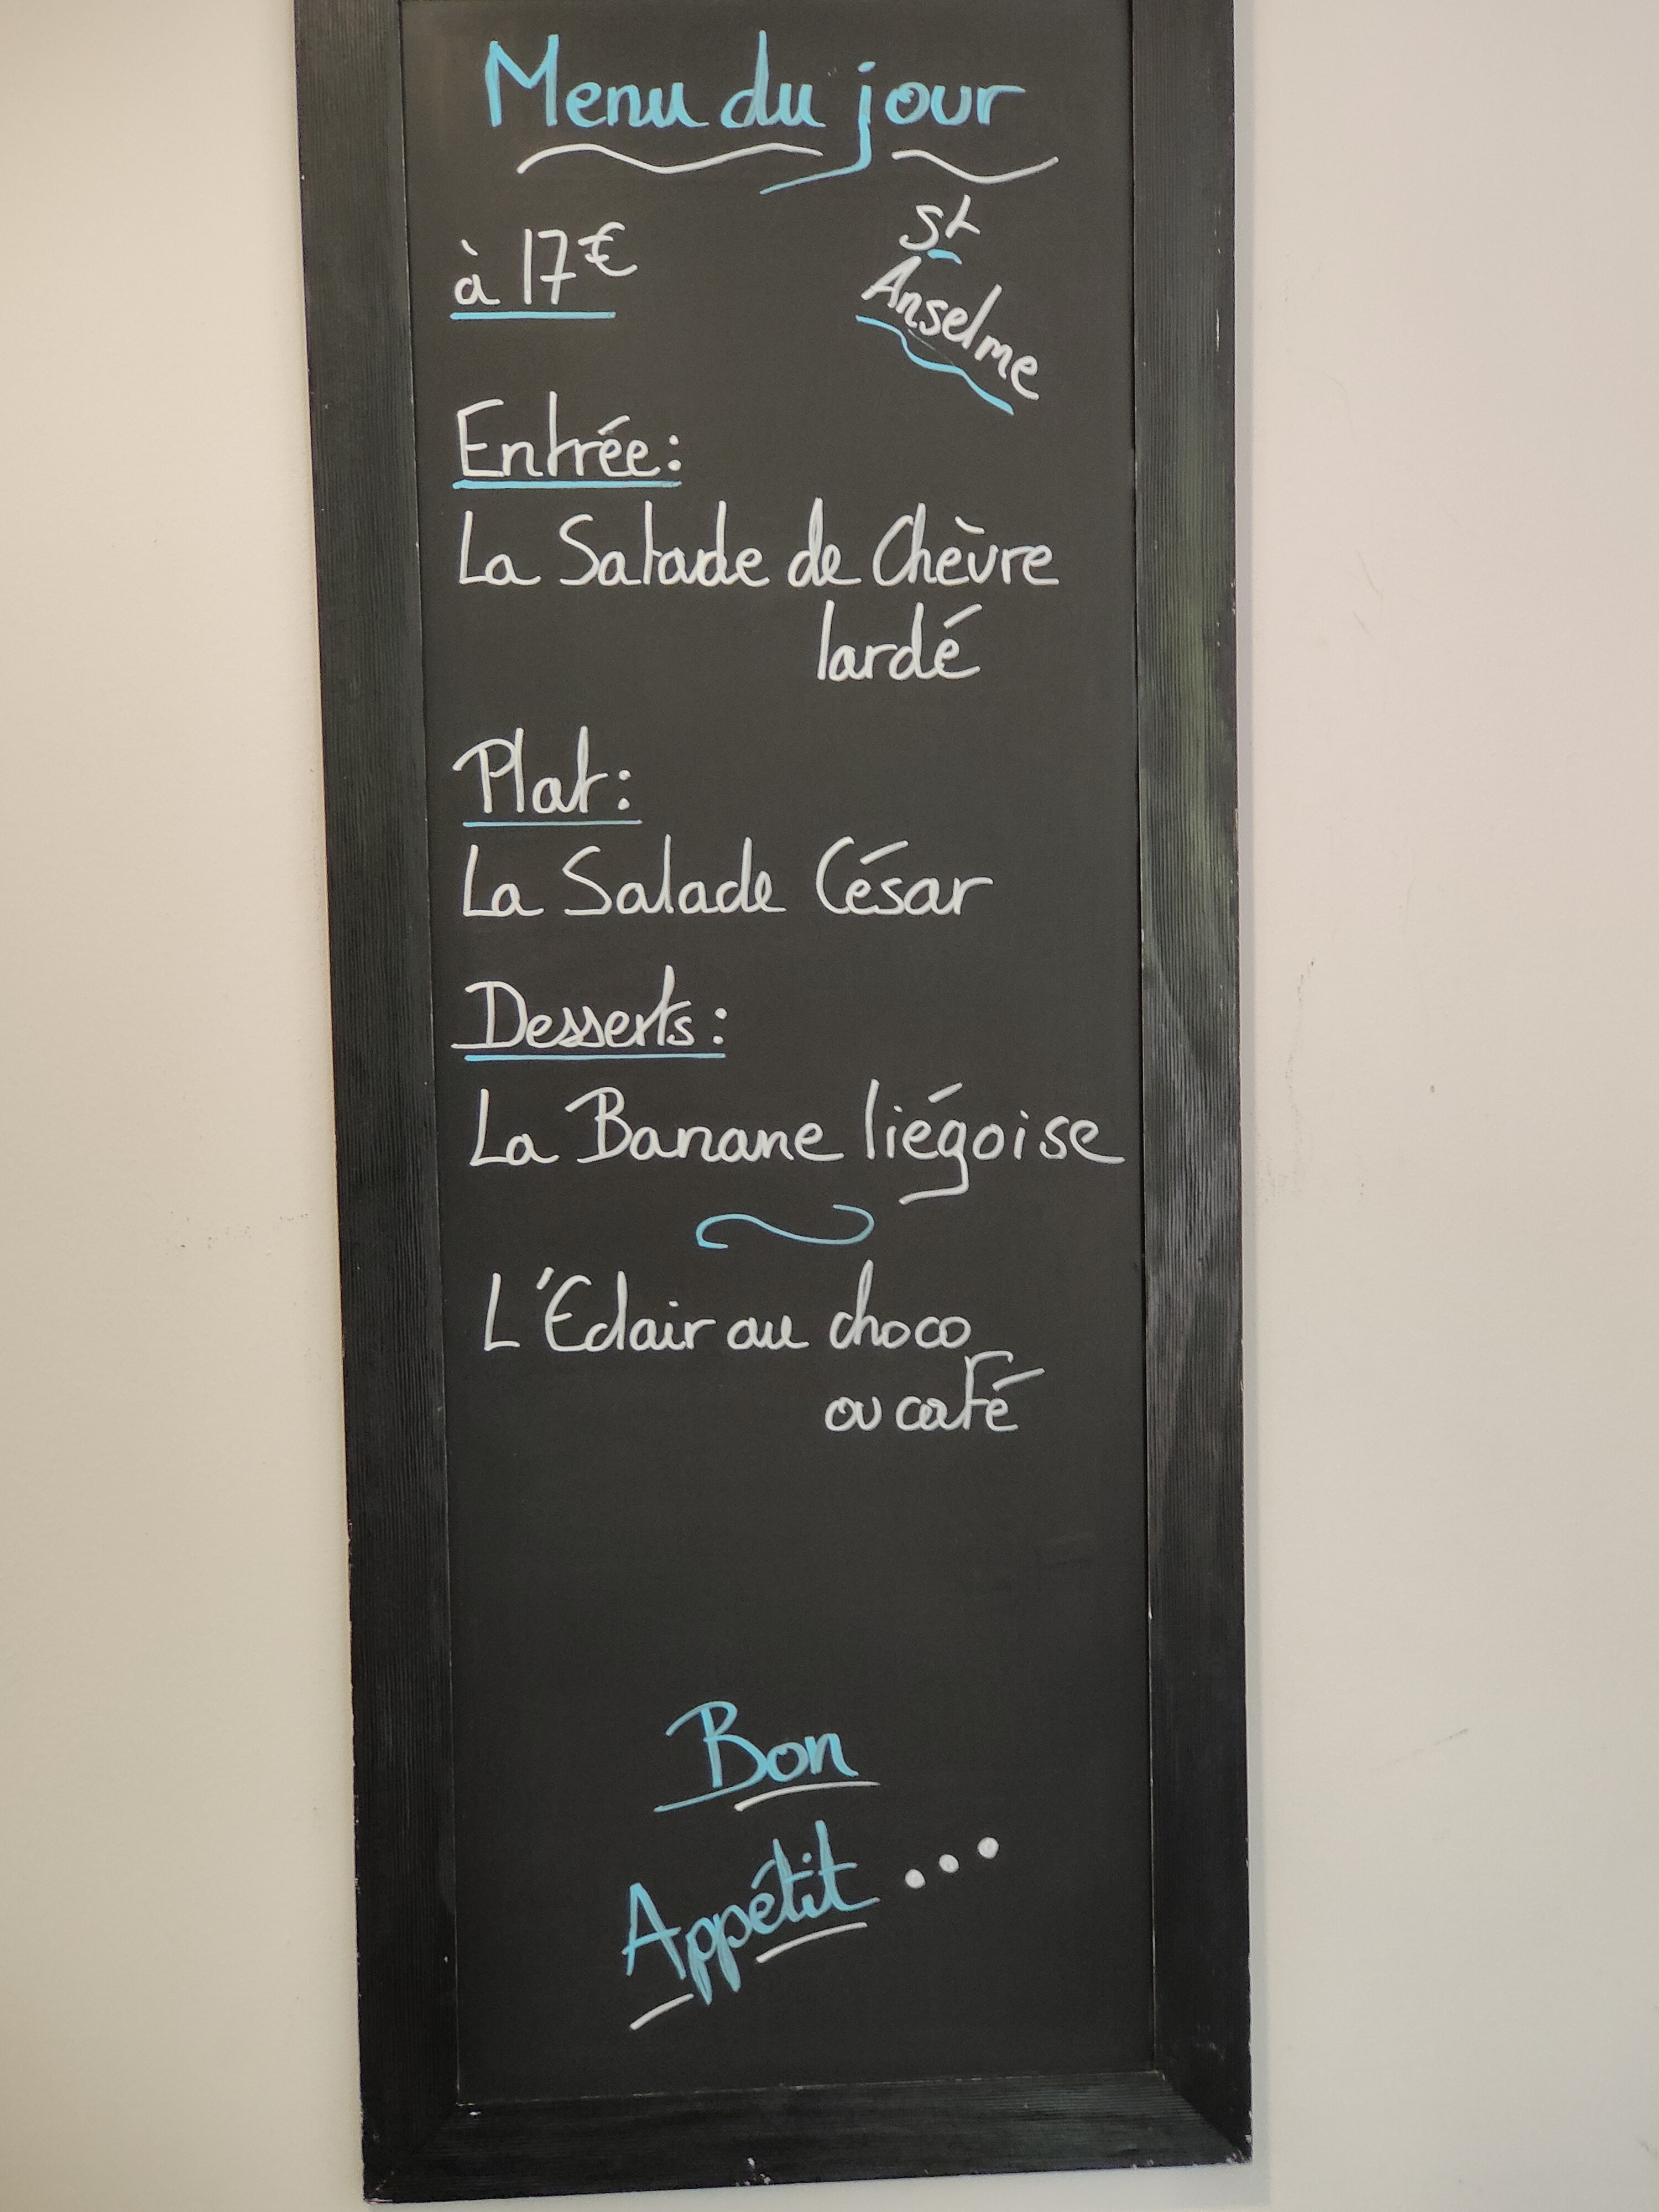 Menu du jour
à 17€
St
Anselme
Entrée:
La Salade de Chèvre
lardé
Plat:
La Salade César
Desserts:
La Banane liégoise
L'Eclair au choco
ou café
Bon
Appétit...